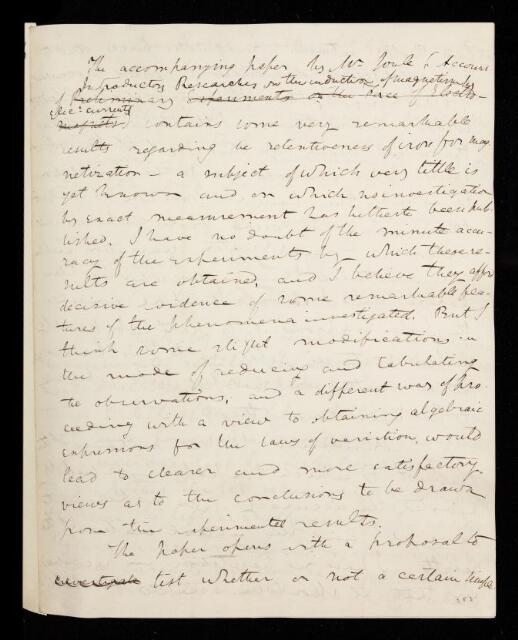 The accompanying paper by Mr Joule "Account
Introductory Researches on the induction of magnetism by
of preliminary experiments on the Laws of Electro-
Elec. currents
magnets) contains some very remarkable
results regarding the retentiveness of iron for mag
netization - a subject of which very little is
yet known and on which no investigation
by exact measurement has hitherto been pub-
lished. I have no doubt of the minute accu-
racy of the experiments by which these re-
sults are obtained, and I believe they afford
decisive evidence of some remarkable fea-
tures of the phenomena investigated. But I
think some slight modifications in
the mode of reducing and tabulating
the observations, and a different way of pro-
ceeding with a view to obtaining algebraic
expressions for the laws of variation, would
lead to clearer and more satisfactory
views as to the conclusions to be drawn
from the experimental results.
The paper opens with a proposal to
test whether or not a certain simple